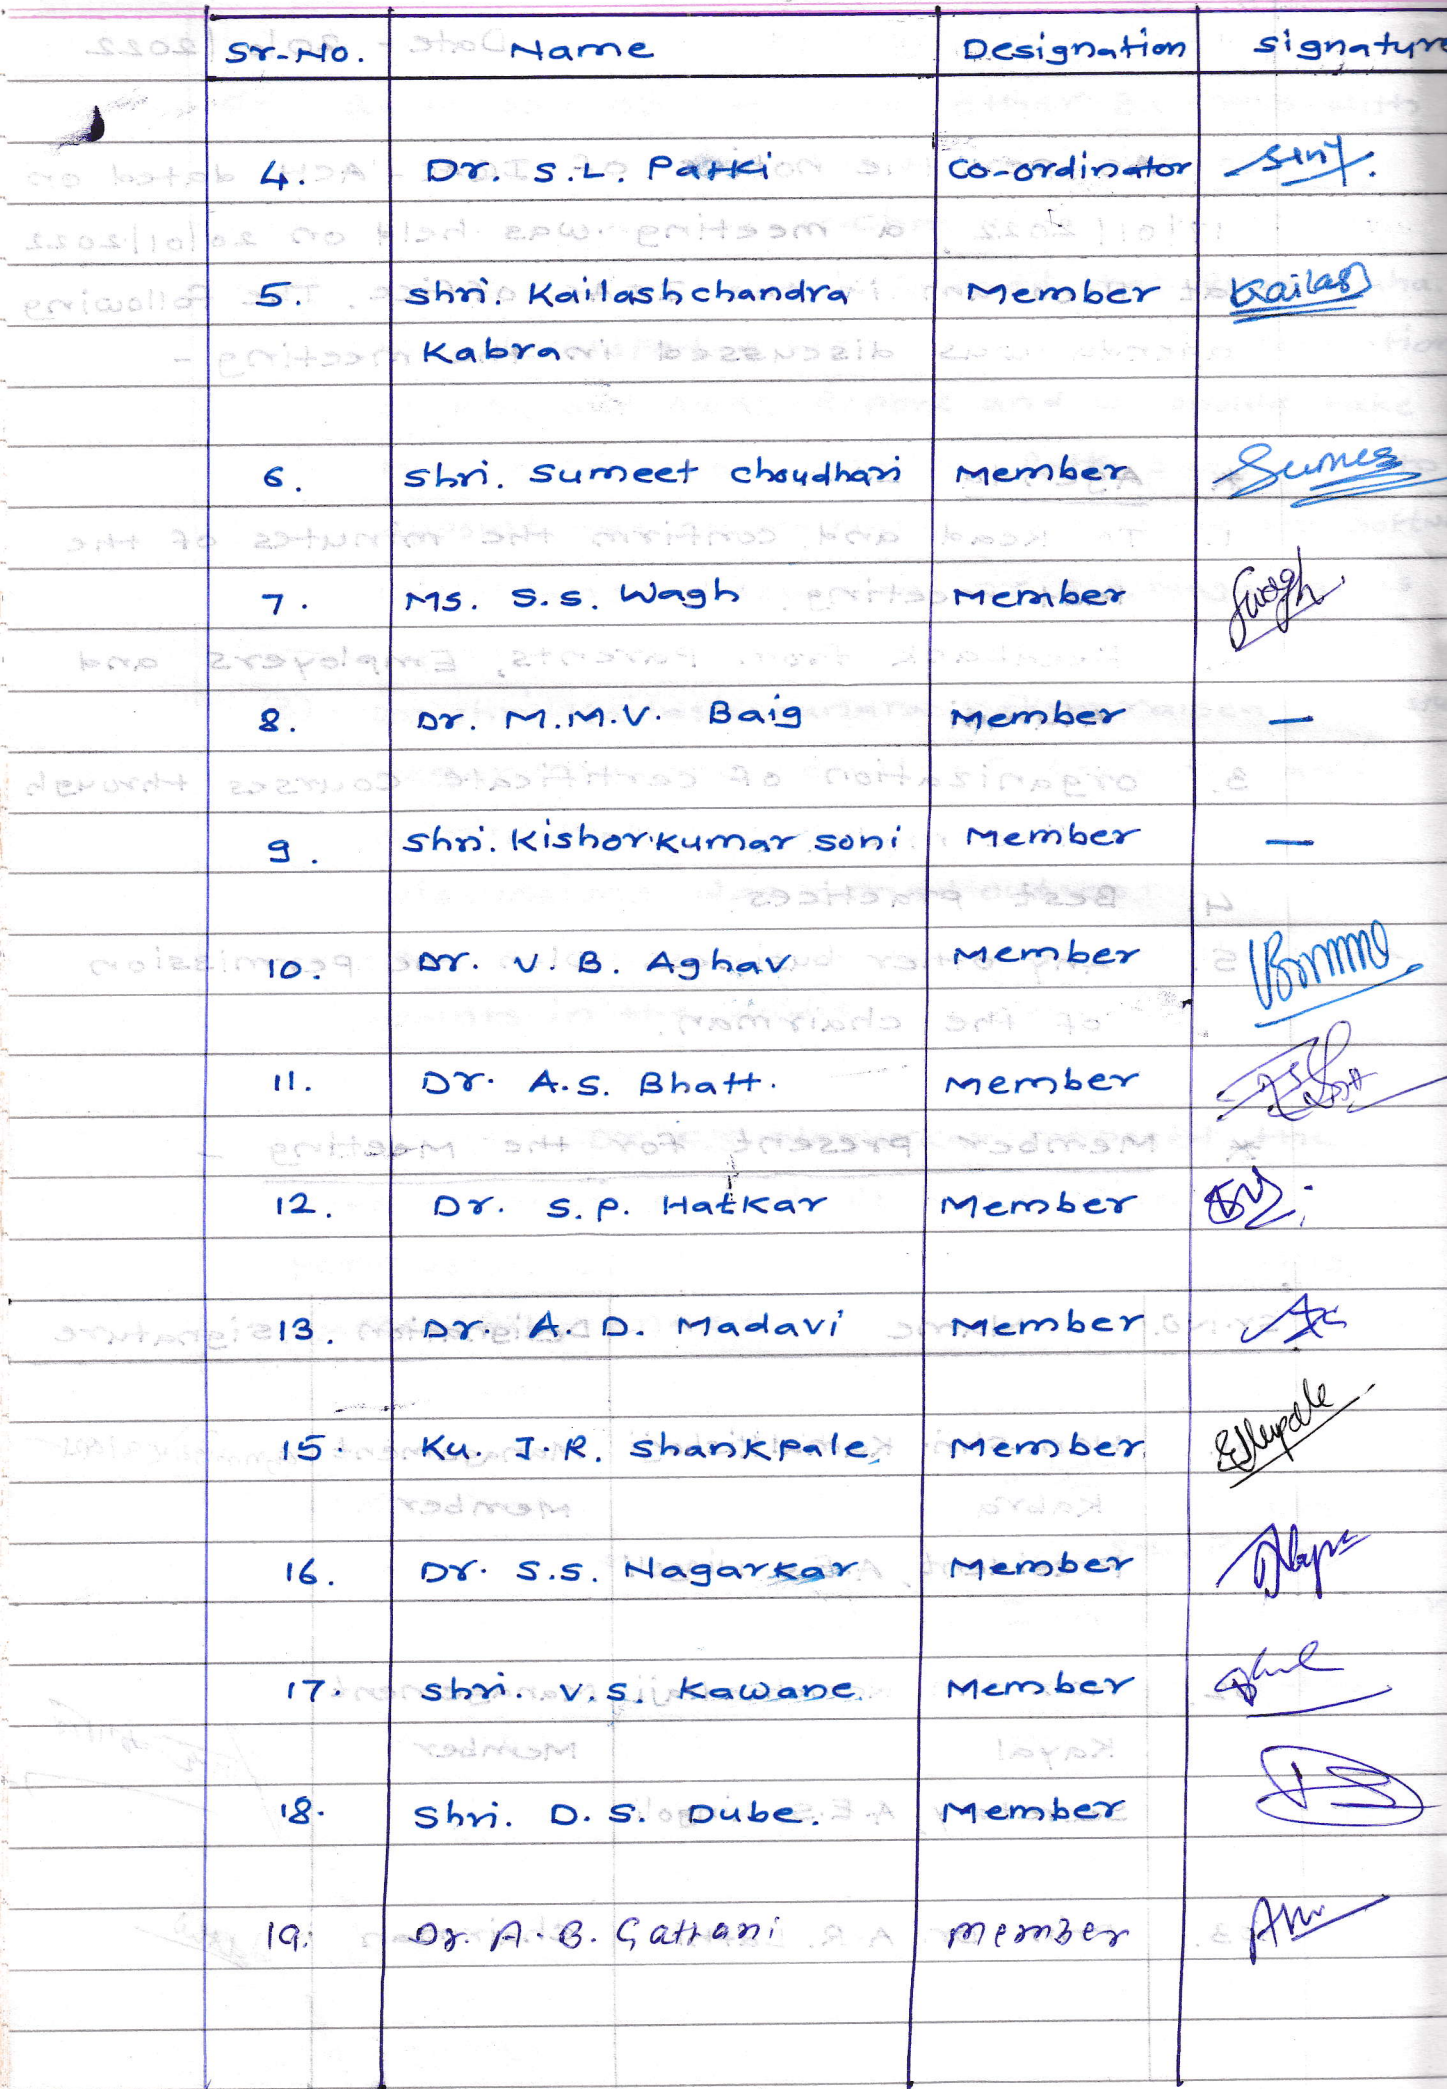 Sr.No. Name Designation Signature
4. Dr. S.L. Patki Co-ordinator
5. Shri. Kailashchandra Member Kailas
Kabra
6. Shri. Sumeet Choudhari Member
7. Ms. S.S. Wagh Member
8. Dr. M.M.V. Baig Member —
9. Shri. Kishorkumar Soni Member —
10. Dr. V. B. Aghav Member
11. Dr. A.S. Bhatt. Member
12. Dr. S.P. Hatkar Member
13. Dr. A. D. Madavi Member
15. Ku. J.R. Shankpale Member
16. Dr. S.S. Nagarkar Member
17. Shri. V.S. Kawane Member
18. Shri. D.S. Dube. Member
19. Dr. A.B. Gattani Member